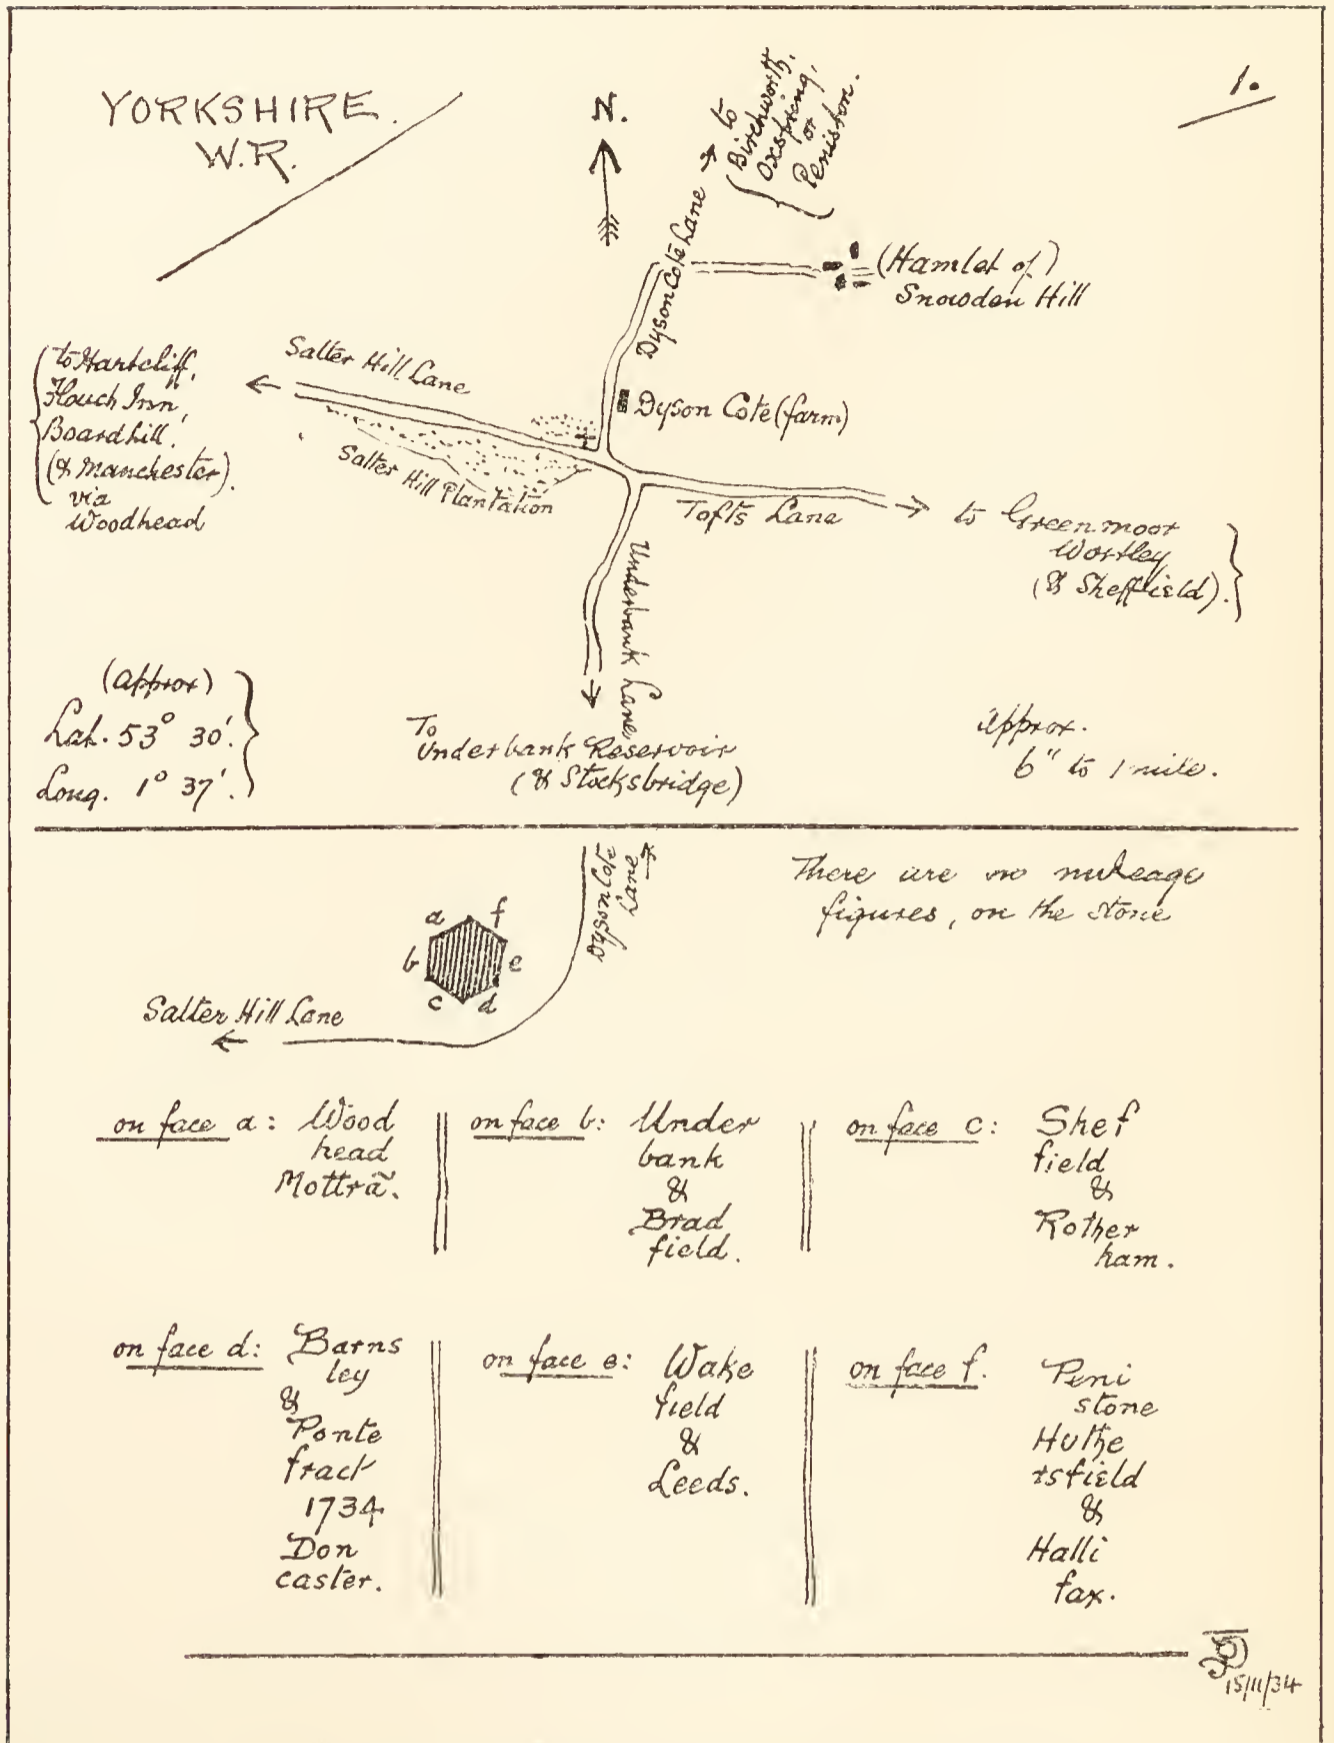 YORKSHIRE.
W.R.
N.
1.
to
Birchworth,
Oxspring,
or
Peniston.
Dyson Cote Lane
(Hamlet of)
Snowden Hill
Salter Hill Lane
to Hartcliff,
Flouch Inn,
Boardhill.
(& Manchester).
via
Woodhead
Dyson Cote (farm)
Salter Hill Plantation
Tofts Lane
to Greenmoor
Wortley
(& Sheffield).
Underbank Lane
(approx)
Lat. 53° 30'.
Long. 1° 37'.
To
Underbank Reservoir
(& Stocksbridge)
Approx.
6" to 1 mile.
Dyson Cote
Lane
There are no mileage
figures, on the stone
a f
b e
c d
Salter Hill Lane
on face a: Wood
head
Mottrã.
on face b: Under
bank
&
Brad
field.
on face c: Shef
field
&
Rother
ham.
on face d: Barns
ley
&
Ponte
fract
1734
Don
caster.
on face e: Wake
field
&
Leeds.
on face f. Peni
stone
Huthe
rsfield
&
Halli
fax.
15/11/34